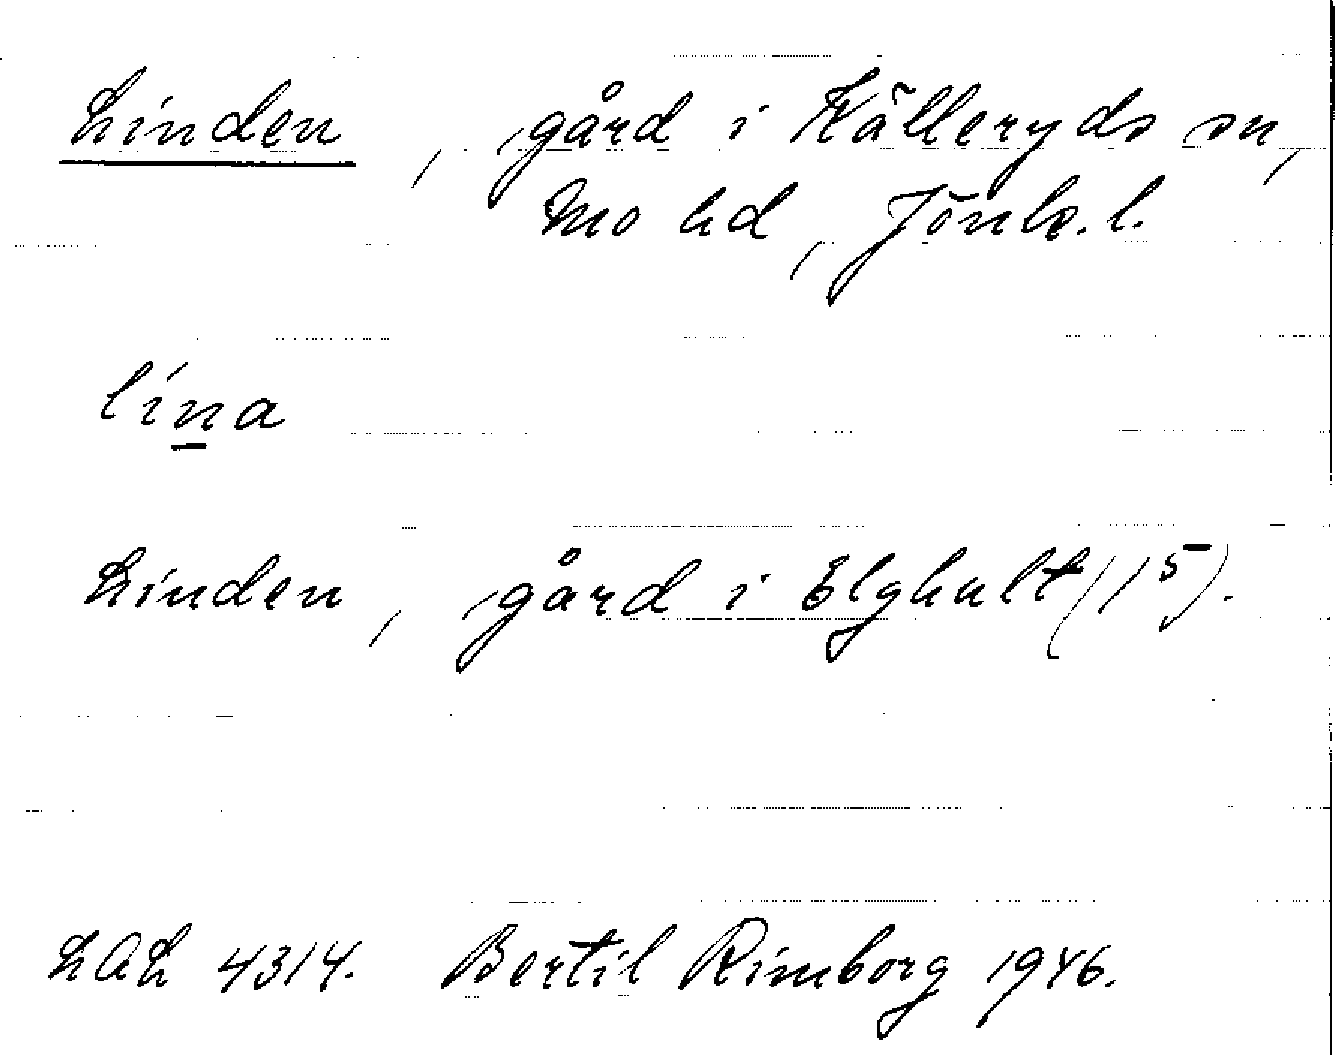 Linden, gård i Källeryds sn,
Mo hd, Jönk. l.
lína
Linden, gård i Elghult (15).
LAL 4314. Bertil Rimborg 1946.